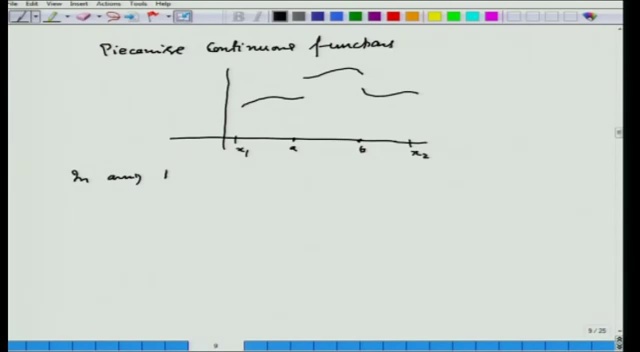 File Edit View Insert Actions Tools Help
Piecewise Continuous functions
x₁ a b x₂
In any
9/25
9